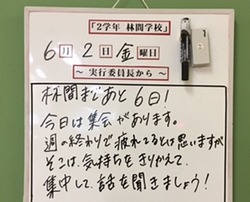 「2学年 林間学校」
6月2日金曜日
～ 実行委員長から ～
林間まであと6日！
今日は集会があります。
週の終わりで疲れてるとは思いますが
そこは、気持ちをきりかえて、
集中して、話を聞きましょう！